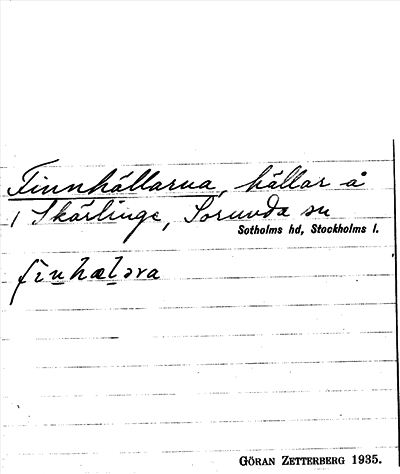 Finnhällarna, hällar å
i Skärlinge, Sorunda sn
Sotholms hd, Stockholms l.
fìnhæləra
GÖRAN ZETTERBERG 1935.